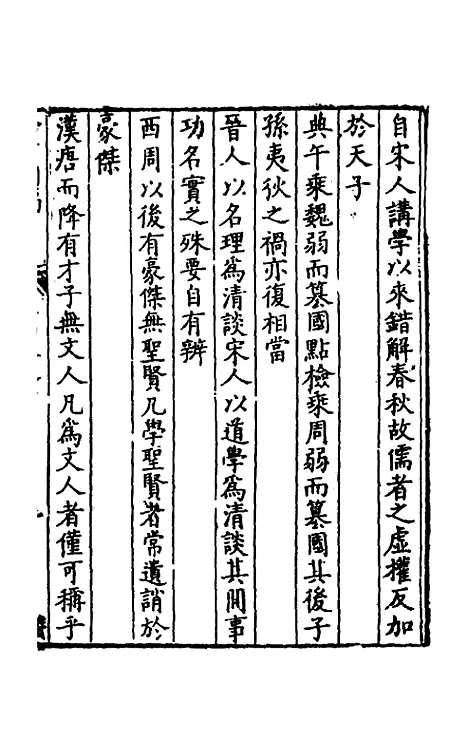 自宋人講學以來錯解春秋故儒者之虛權反加
於天子
典午乘魏弱而篡國點檢乘周弱而篡國其後子
孫夷狄之禍亦復相當
晉人以名理爲清談宋人以道學爲清談其間事
功名實之殊要自有辨
西周以後有豪傑無聖賢凡學聖賢者常遺誚於
豪傑
漢唐而降有才子無文人凡爲文人者僅可稱乎